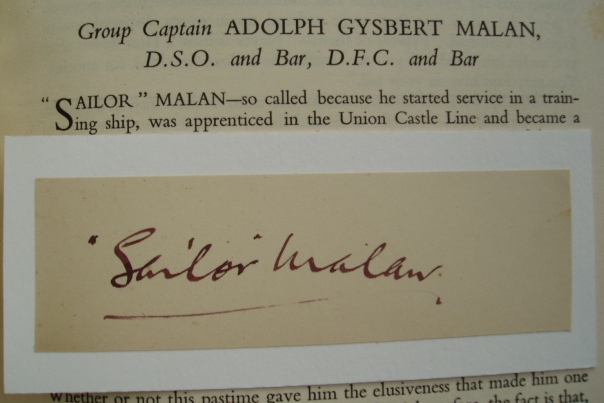 Group Captain ADOLPH GYSBERT MALAN,
D.S.O. and Bar, D.F.C. and Bar
“SAILOR” MALAN—so called because he started service in a train-
ing ship, was apprenticed in the Union Castle Line and became a
"Sailor" Malan.
Whether or not this pastime gave him the elusiveness that made him one
the fact is that,